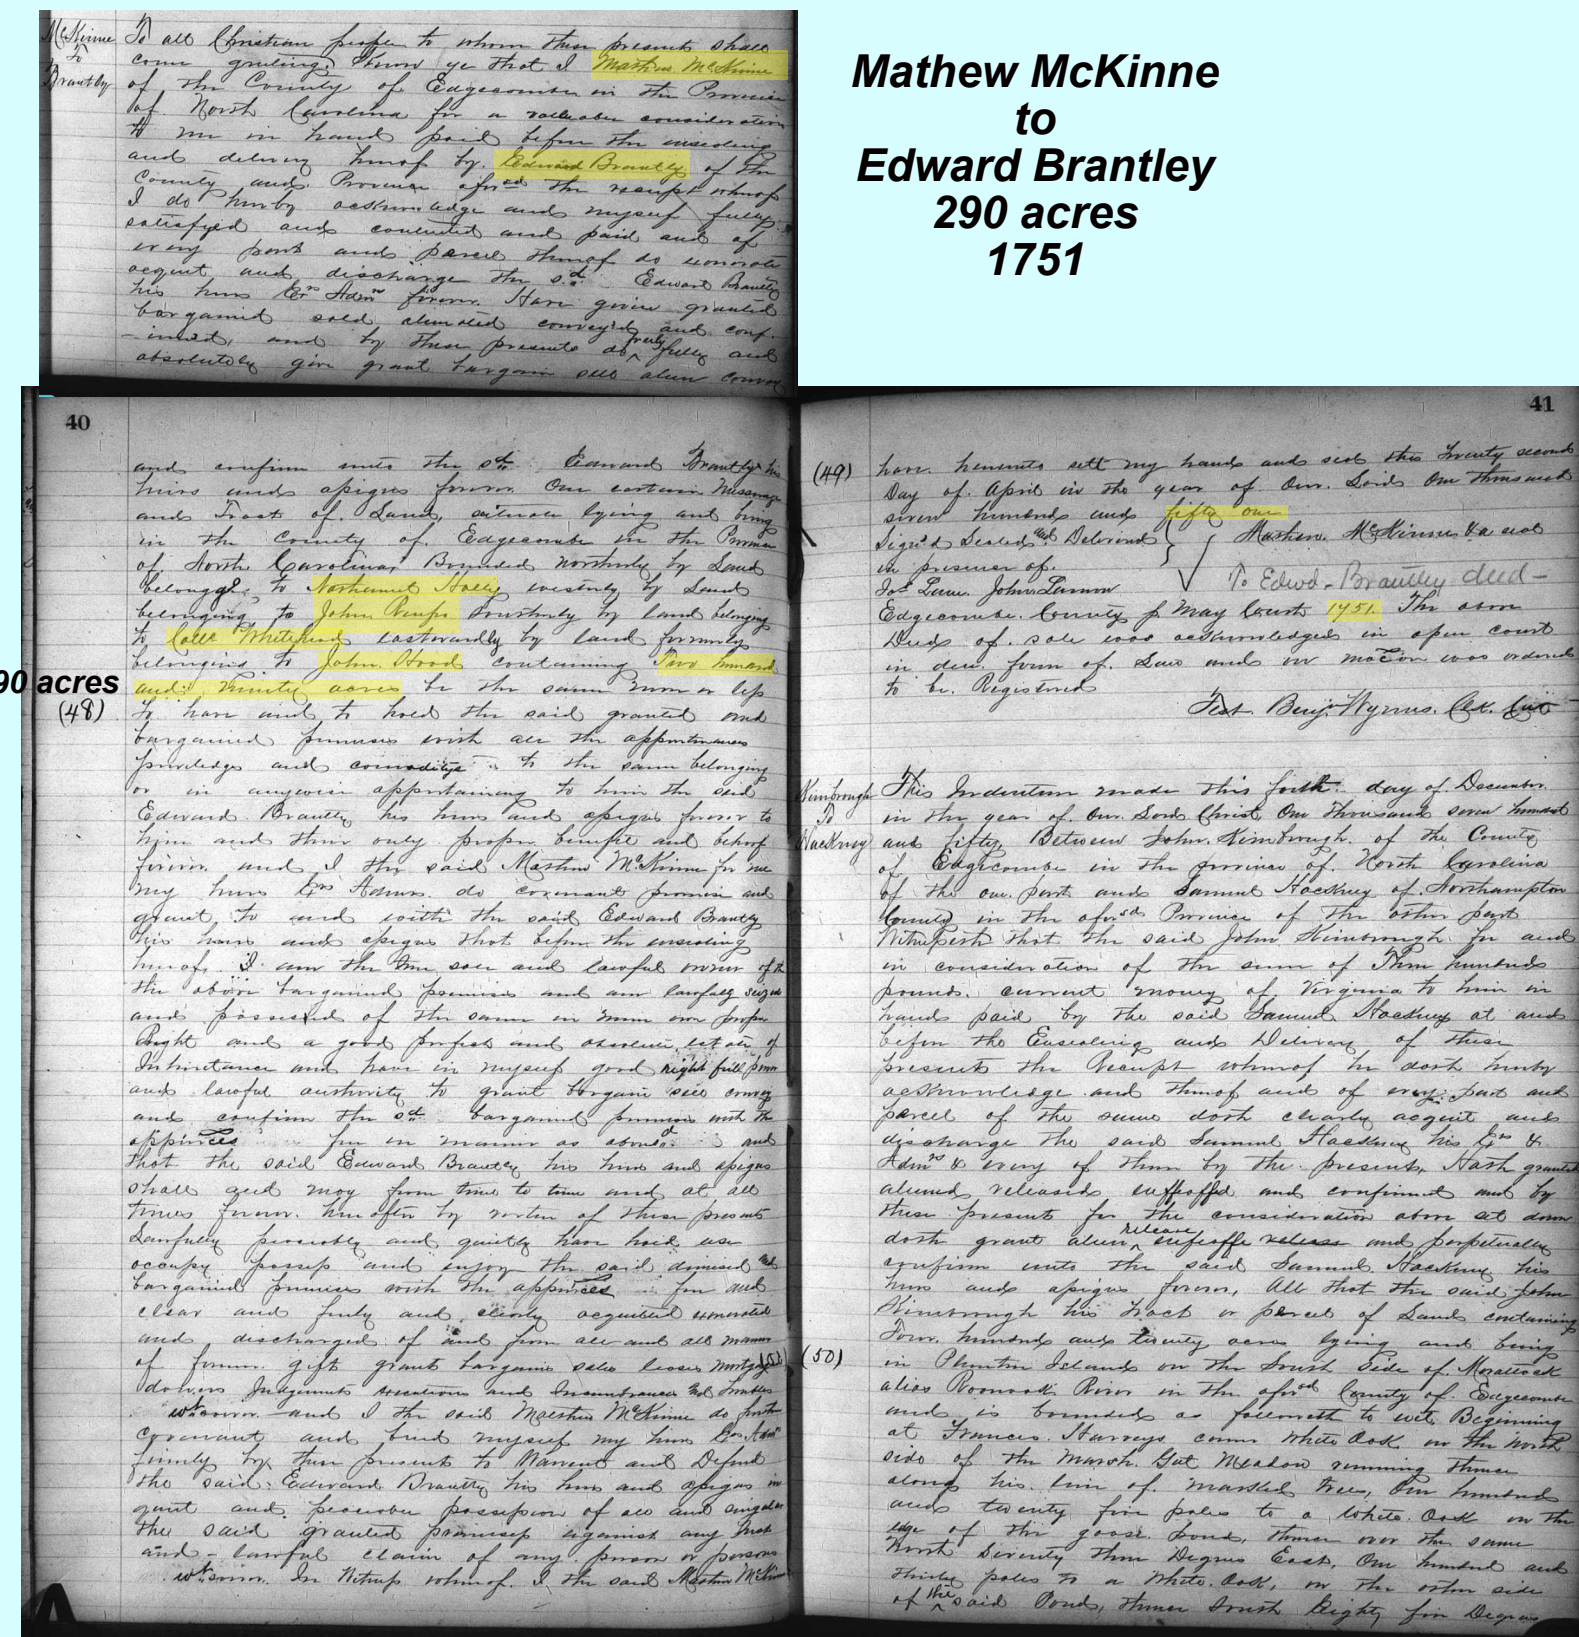 McKinne
To
Brantley
To all Christian people to whom these presents shall
come greeting. Know ye that I Mathew McKinne
of the County of Edgecombe in the Province
of North Carolina for a valuable consideration
to me in hand paid before the ensealing
and delivery hereof by Edward Brantley of the
County and Province aforsd the receipt whereof
I do hereby acknowledge and myself fully
satisfyed and contented and paid and of
every part and parcel thereof do exonerate
acquit and discharge the sd. Edward Brantley
his heirs Exrs Admrs forever. Have given granted
bargained sold, alienated conveyed and conf-
-irmed, and by these presents do freely fully and
absolutely give grant bargain sell alien convey
Mathew McKinne
to
Edward Brantley
290 acres
1751
40
and confirm unto the sd. Edward Brantley his
heirs and assigns forever One certain Messuage
and Tract of Land, situate lying and being
in the County of Edgecombe in the Province
of North Carolina Bounded northerly by Land
belongg. to Nathaniel Holly westerly by Land
belonging to John Renss Southerly by land belonging
to Whitehead eastwardly by land formerly
belonging to John Hood containing Two hundred
90 acres
and Ninety acres be the same more or less
(48)
To have and to hold the said granted and
bargained premises with all the appurtenances
priviledges and comodityes to the same belonging
or in anywise appertaining to him the said
Edward Brantley his heirs and assigns forever to
him and their only proper benefit and behoof
forever and I the said Mathew McKinne for me
my heirs Exrs Admrs. do covenant promise and
grant, to and with the said Edward Brantley
his heirs and assigns that before the ensealing
hereof, I am the true sole and lawful owner of the
the above bargained premises and am lawfully seized
and possessed of the same in mine own proper
Right and a good perfect and absolute estate of
Inheritance and have in myself good right full power
and lawful authority to grant bargain sell convey
and confirm the sd. bargained premises with the
appurces for in manner as abovesd and
that the said Edward Brantley his heirs and assigns
shall and may from time to time and at all
times forever hereafter by vertue of these presents
Lawfully peaceably and quietly have hold use
occupy possess and enjoy the said demised and
bargained premises with the appurces free and
clear and freely and clearly acquitted exonerated
and discharged of and from all and all manner
of former gift grant bargains sales leases mortgages
dowers Judgements executions and Incumbrances and troubles
wtsoever. and I the said Mathew McKinne do further
covenant and bind myself my heirs Exrs Admrs
firmly by these presents to Warrent and Defend
the said Edward Brantley his heirs and assigns in
quiet and peaceable possession of all and singular
the said granted premises against any Just
and lawful claim of any person or persons
wtsoever. In Witness whereof. I the said Mathew McKinne
41
(49)
have hereunto sett my hand and seal this Twenty second
Day of April in the year of Our Lord One thousand
seven hundred and fifty one
Sign'd Sealed and Delivered Mathew McKinne & a seal
in presence of. To Edwd- Brantley deed-
Jos. Lane. John Lannon
Edgecombe. County ss May Court 1751. The above
Deed of sale was acknowledged in open court
in due form of Law and on motion was ordered
to be Registered
Test. Benj. Wynns. Clk. Cur
Kimbrough
To
Hackney
This Indenture made this forth day of December
in the year of Our Lord Christ, One thousand seven hundred
and fifty Between John Kimbrough of the County
of Edgecombe in the province of North Carolina
of the one part and Samuel Hackney of Northampton
County in the aforsd Province of the other part
Witnesseth that the said John Kimbrough for and
in consideration of the sum of Three hundred
pounds current money of Virginia to him in
hand paid by the said Samuel Hackney at and
before the Ensealing and Delivery of these
presents the Receipt whereof he doth hereby
acknowledge and thereof and of every part and
parcel of the same doth clearly acquit and
discharge the said Samuel Hackney his Exrs &
Admrs & every of them by the presents, Hath granted
aliened released enfeoffed and confirmed and by
these presents for the consideration above set down
doth grant alien release enfeoffe release and perpetually
confirm unto the said Samuel Hackney his
heirs and assigns forever, All that the said John
Kimbrough his tract or parcel of Land containing
Four hundred and twenty acres lying and being
(50)
in Plumton Island on the South Side of Morattock
alias Roonoak River in the aforsd County of Edgecombe
and is bounded as followeth to wit Beginning
at Frances Harveys corner White Oak on the North
side of the Marsh Gut Meadow running thence
along his line of marked trees, One hundred
and twenty five poles to a White Oak on the
edge of the goose Pond, thence over the same
North Seventy three Degrees East, One hundred and
thirty poles to a White Oak, on the other side
of the said Pond, thence South Eighty five Degrees